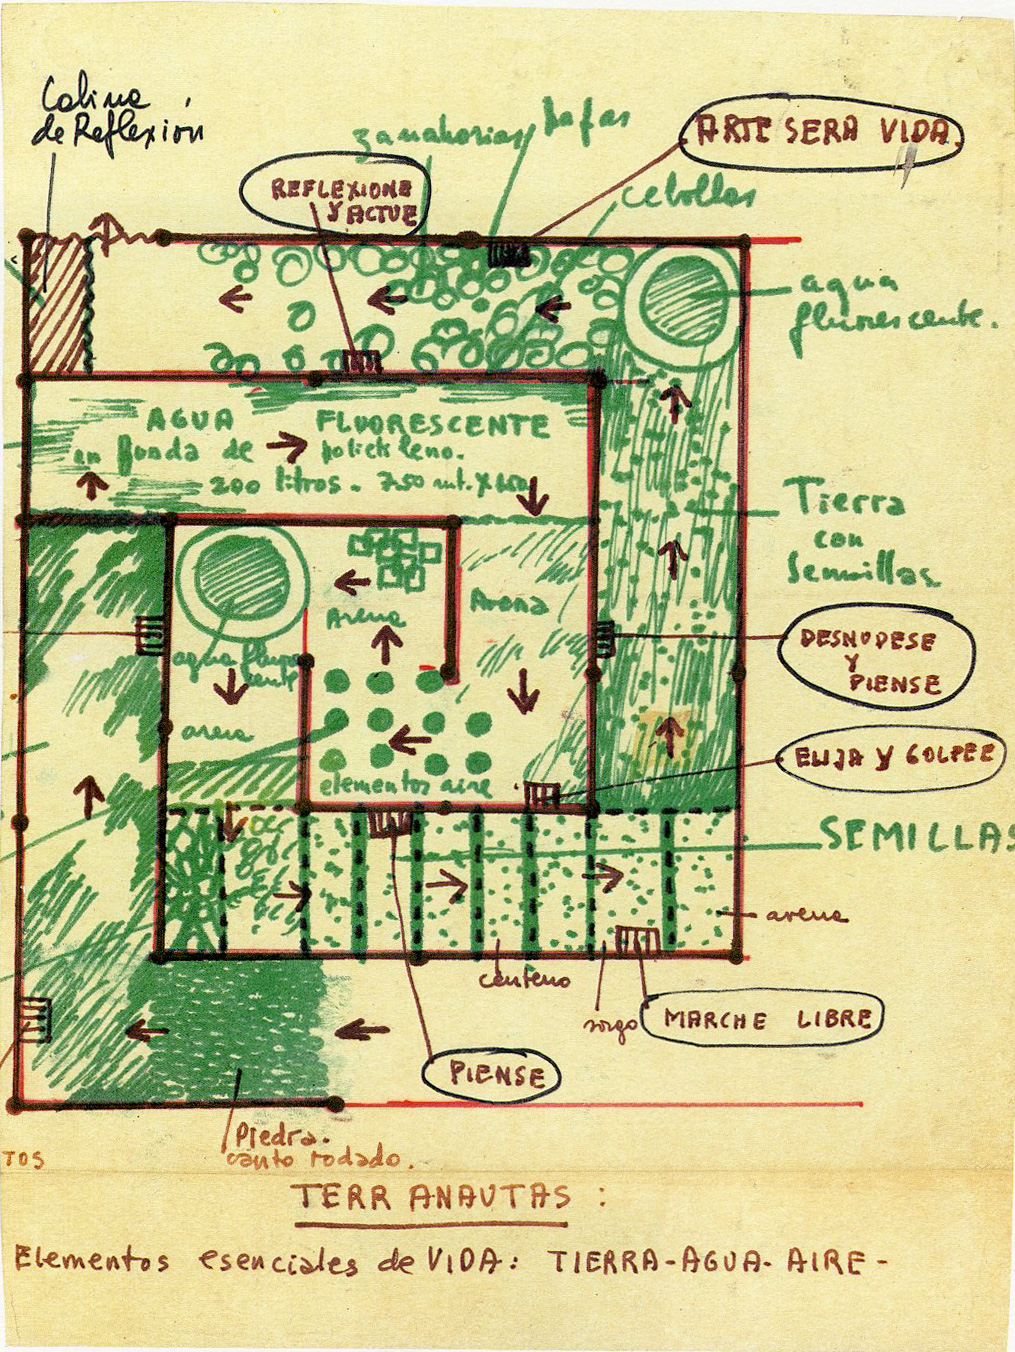 Colina
de Reflexión
zanahorias
papas
ARTE SERA VIDA.
REFLEXIONE
Y ACTUE
cebollas
agua
fluorescente.
AGUA FLUORESCENTE
en funda de polietileno.
200 litros. 7.50 mt. X
Tierra
con
Semillas
Arena
Arena
agua fluo
cente
DESNUDESE
Y
PIENSE
arena
elementos aire
ELIJA Y GOLPEE
SEMILLAS
arena
centeno
sorgo
MARCHE LIBRE
PIENSE
Piedra.
canto rodado.
TOS
TERRANAUTAS :
Elementos esenciales de VIDA: TIERRA-AGUA-AIRE-